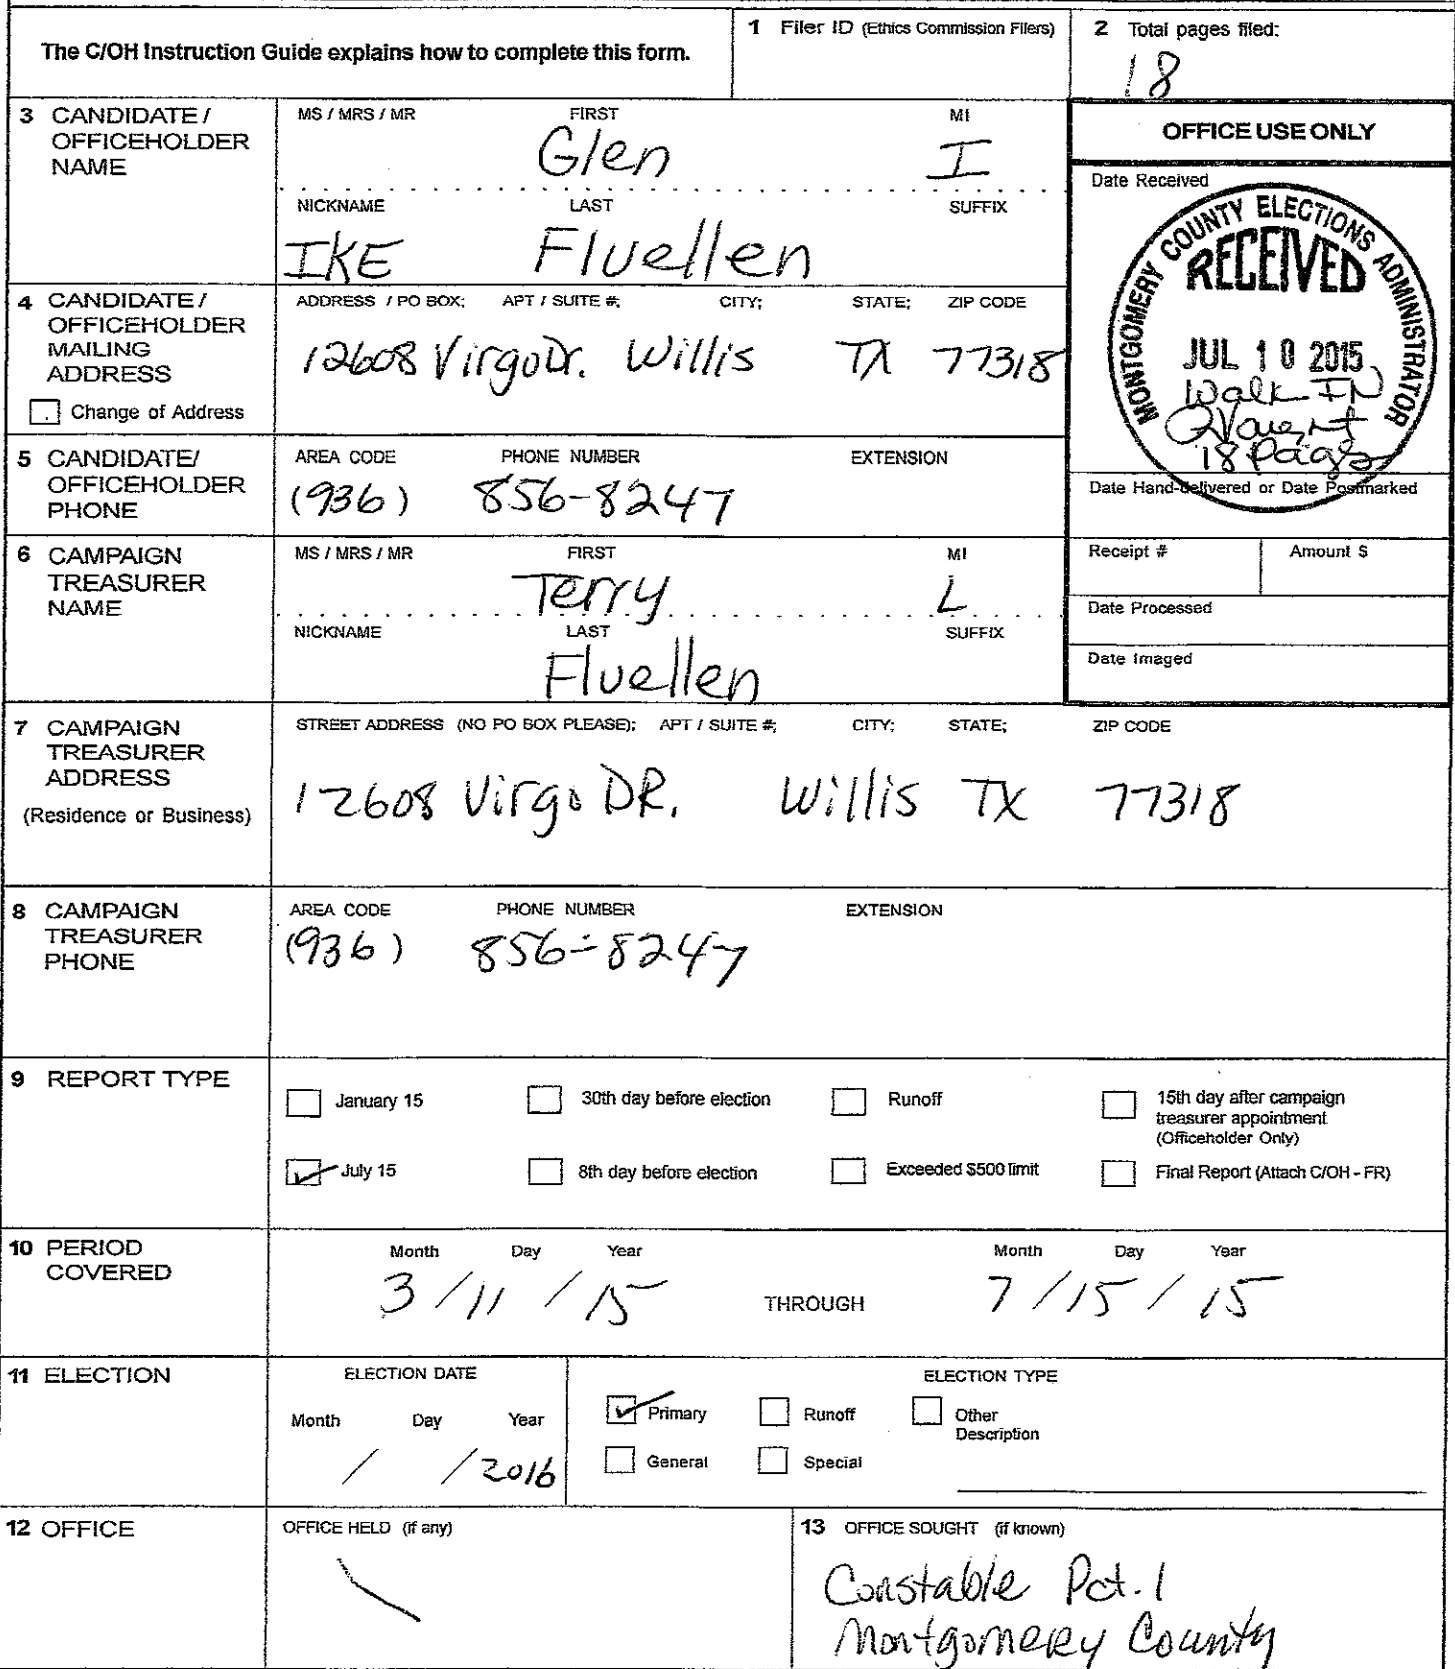 The C/OH Instruction Guide explains how to complete this form.
1 Filer ID (Ethics Commission Filers)
2 Total pages filed:
18
3 CANDIDATE / OFFICEHOLDER NAME
MS / MRS / MR FIRST MI
Glen I
NICKNAME LAST SUFFIX
IKE Fluellen
OFFICE USE ONLY
Date Received
MONTGOMERY COUNTY ELECTIONS ADMINISTRATOR
RECEIVED
JUL 10 2015
Walk IN
18 Pages
Date Hand-delivered or Date Postmarked
Receipt # Amount $
Date Processed
Date Imaged
4 CANDIDATE / OFFICEHOLDER MAILING ADDRESS
Change of Address
ADDRESS / PO BOX; APT / SUITE #; CITY; STATE; ZIP CODE
12608 Virgo Dr. Willis TX 77318
5 CANDIDATE/ OFFICEHOLDER PHONE
AREA CODE PHONE NUMBER EXTENSION
(936) 856-8247
6 CAMPAIGN TREASURER NAME
MS / MRS / MR FIRST MI
Terry L
NICKNAME LAST SUFFIX
Fluellen
7 CAMPAIGN TREASURER ADDRESS
(Residence or Business)
STREET ADDRESS (NO PO BOX PLEASE); APT / SUITE #; CITY; STATE; ZIP CODE
12608 Virgo DR. Willis TX 77318
8 CAMPAIGN TREASURER PHONE
AREA CODE PHONE NUMBER EXTENSION
(936) 856-8247
9 REPORT TYPE
January 15 30th day before election Runoff 15th day after campaign treasurer appointment (Officeholder Only)
July 15 8th day before election Exceeded $500 limit Final Report (Attach C/OH - FR)
10 PERIOD COVERED
Month Day Year Month Day Year
3 / 11 / 15 THROUGH 7 / 15 / 15
11 ELECTION
ELECTION DATE
Month Day Year
/ / 2016
ELECTION TYPE
Primary Runoff Other Description
General Special
12 OFFICE
OFFICE HELD (if any)
13 OFFICE SOUGHT (if known)
Constable Pct. 1
Montgomery County